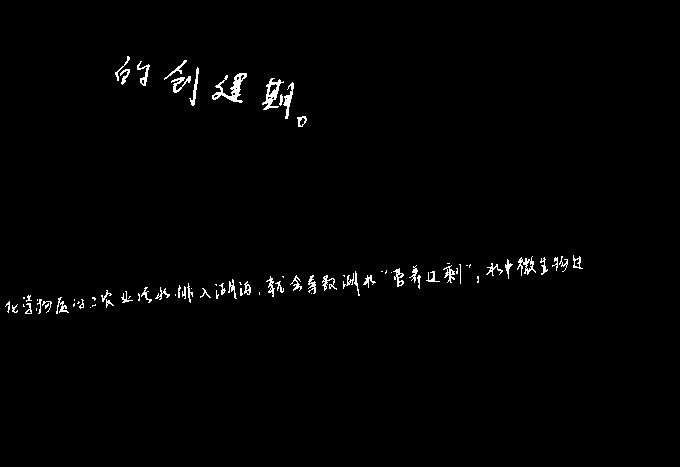 的创建期。
化学物质的工农业污水排入湖泊,就会导致湖水“营养过剩”,水中微生物过